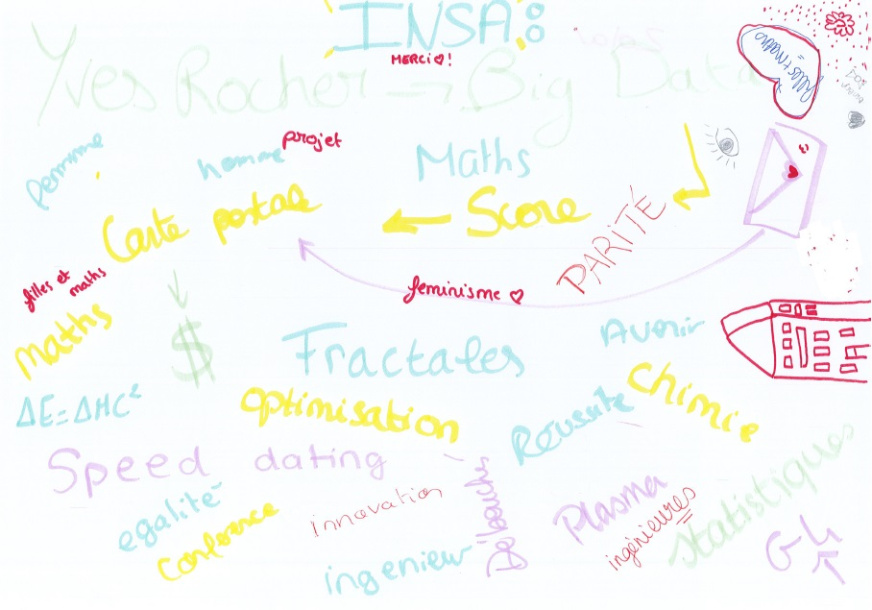 INSA:
MERCI ♡!
Yves Rocher → Big Data
filles + maths
=
femme
homme
projet
Maths
Carte postale
← Score
PARITÉ
filles et
maths
feminisme ♡
maths
$
Fractales
Avenir
ΔE=ΔMC²
Optimisation
Réussite
Chimie
Speed dating
egalité
Conférence
innovation
ingenieur
Débouchés
Plasma
ingénieures
statistiques